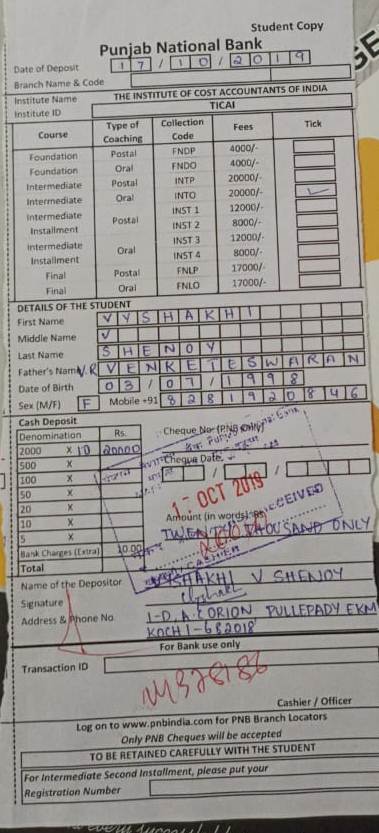 Student Copy
Punjab National Bank
Date of Deposit 17/10/2019
Branch Name & Code
Institute Name THE INSTITUTE OF COST ACCOUNTANTS OF INDIA
Institute ID TICAI
Course Type of Coaching Collection Code Fees Tick
Foundation Postal FNDP 4000/-
Foundation Oral FNDO 4000/-
Intermediate Postal INTP 20000/-
Intermediate Oral INTO 20000/- ✓
Intermediate Installment Postal INST 1 12000/-
INST 2 8000/-
Intermediate Installment Oral INST 3 12000/-
INST 4 8000/-
Final Postal FNLP 17000/-
Final Oral FNLO 17000/-
DETAILS OF THE STUDENT
First Name VYSHAKHI
Middle Name V
Last Name SHENOY
Father's Name V.R VENKETESWARAN
Date of Birth 03/07/1998
Sex (M/F) F Mobile +91 8281920846
Cash Deposit
Denomination Rs. Cheque No: (PNB Only)
2000 X 10 20000
500 X Cheque Date:
100 X
50 X 17 OCT 2019
20 X
10 X Amount (in words): Rs)
5 X TWENTY THOUSAND ONLY
Bank Charges (Extra) 10.00
RECEIVED
CASHIER
Total
Name of the Depositor VYSHAKHI V SHENOY
Signature
Address & Phone No. 1-D, A, ORION PULLEPADY EKM
KOCHI-682018
For Bank use only
Transaction ID
M378186
Cashier / Officer
Log on to www.pnbindia.com for PNB Branch Locators
Only PNB Cheques will be accepted
TO BE RETAINED CAREFULLY WITH THE STUDENT
For Intermediate Second Installment, please put your
Registration Number